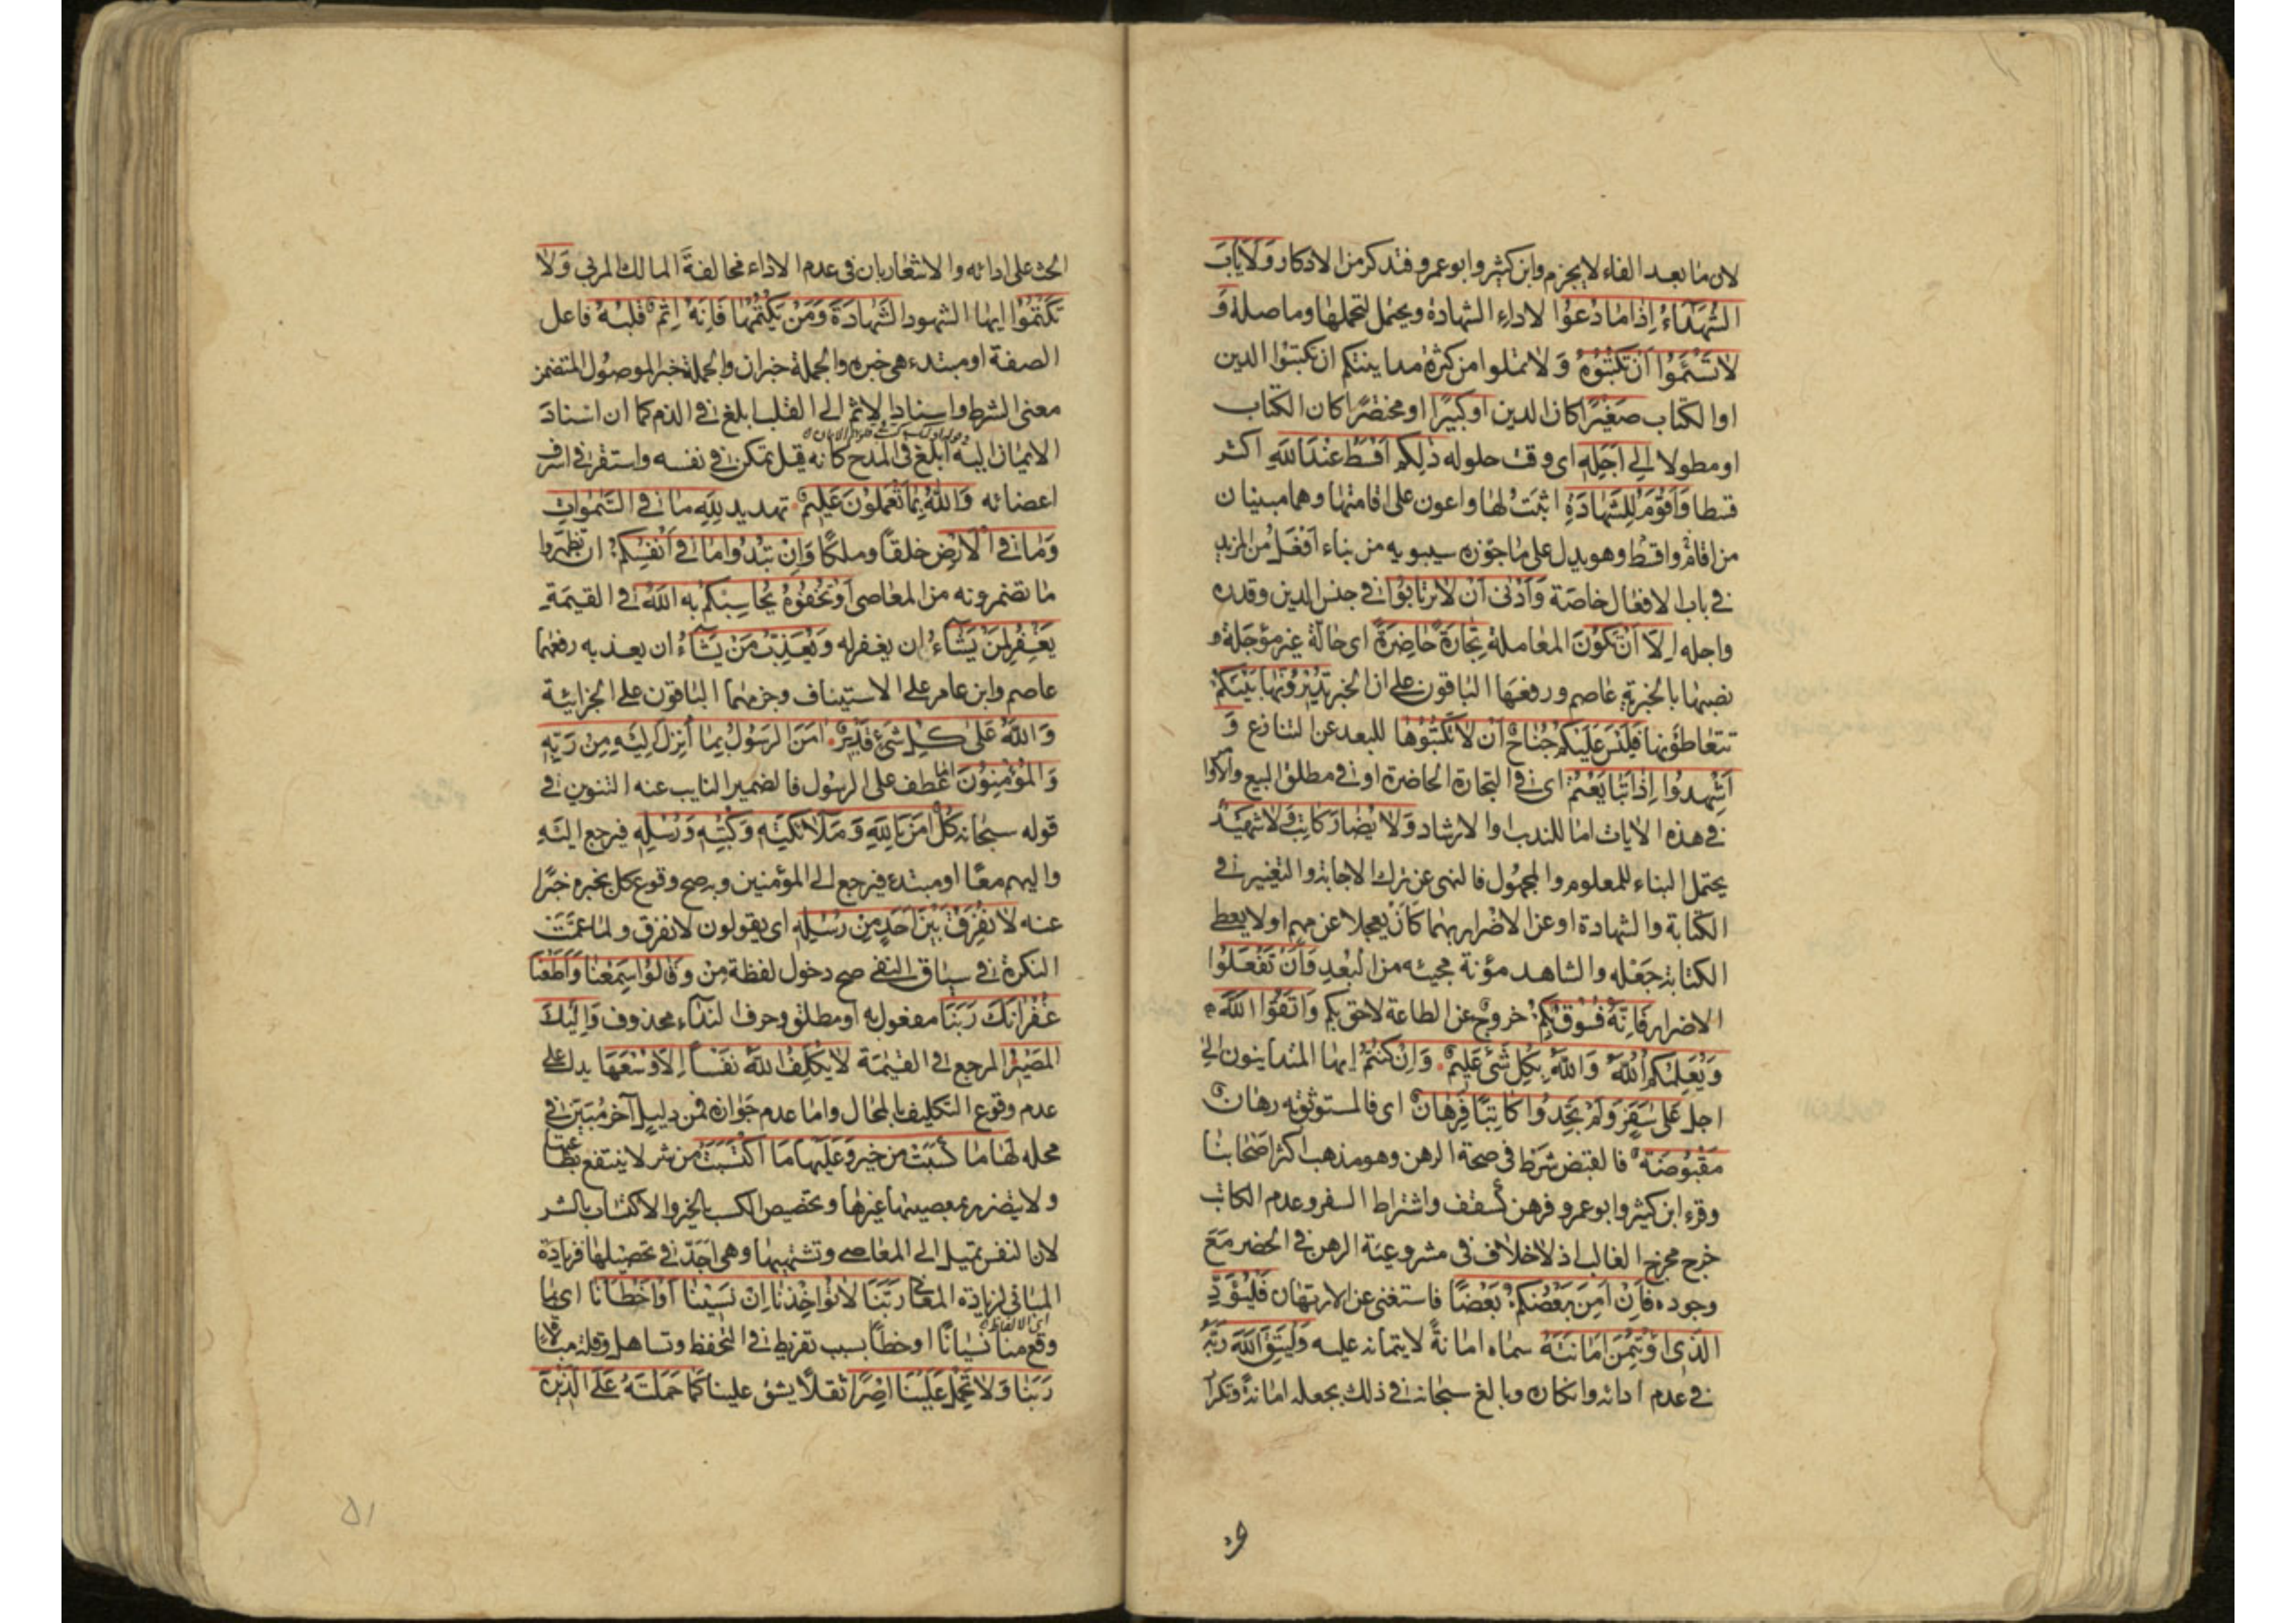 لان ما بعد الفاء لا يجزم وابن كثير وابو عمرو فتذكر من الاذكار وَلَا يَأبَ
الشُّهَدَاءُ اِذَا مَا دُعُوا لاداء الشهادة ويحتمل لتحملها وما صلة وَ
لَا تَسْئَمُوا اَنْ تَكْتُبُوهُ وَ لا تملوا من كثرة مداينتكم ان تكتبوا الدين
او الكتاب صَغِيرًا كان الدين اَوْ كَبِيرًا او مختصرًا كان الكتاب
او مطولا اِلَى اَجَلِهِ اى وقت حلوله ذٰلِكُمْ اَقْسَطُ عِنْدَ اللّٰهِ اكثر
قسطا وَاَقْوَمُ لِلشَّهَادَةِ اثبت لها واعون على اقامتها وهما مبنيان
من اقام واقسط وهو يدل على ما جوزه سيبويه من بناء اَفْعَل من المزيد
فى باب الافعال خاصة وَاَدْنىٰ اَنْ لَا تَرْتَابُوا فى جنس الدين وقدره
واجله اِلَّا اَنْ تَكُونَ المعاملة تِجَارَةً حَاضِرَةً اى حالّة غير مؤجلة و
نصبها بالخبرية عاصم ورفعها الباقون على ان الخبر تُدِيرُونَهَا بَيْنَكُمْ
تتعاطونها فَلَيْسَ عَلَيْكُمْ جُنَاحٌ اَنْ لَا تَكْتُبُوهَا للبعد عن التنازع وَ
اَشْهِدُوا اِذَا تَبَايَعْتُمْ اى فى التجارة الحاضرة او فى مطلق البيع والاوامر
فى هذه الايات اما للندب او الارشاد وَلَا يُضَارَّ كَاتِبٌ وَلَا شَهِيدٌ
يحتمل البناء للمعلوم والمجهول فالنهى عن ترك الاجابة والتغيير فى
الكتابة والشهادة او عن الاضرار بهما كأن يعجلا عن مهم او لا يعطى
الكتابة جعله والشاهد مؤنة مجيئه من البُعد وَاِنْ تَفْعَلُوا
الاضرار فَاِنَّهُ فُسُوقٌ بِكُمْ خروج عن الطاعة لاحق بكم وَاتَّقُوا اللّٰهَ
وَيُعَلِّمُكُمُ اللّٰهُ وَاللّٰهُ بِكُلِّ شَىْءٍ عَلِيمٌ وَاِنْ كُنْتُمْ ايها المتداينون الى
اجل عَلَى سَفَرٍ وَلَمْ تَجِدُوا كَاتِبًا فَرِهَانٌ اى فالمستوثق به رهان
مَقْبُوضَةٌ فالقبض شرط فى صحة الرهن وهو مذهب اكثر اصحابنا
وقرء ابن كثير وابو عمرو فرهن كسُقف واشتراط السفر وعدم الكاتب
خرج مخرج الغالب اذ لا خلاف فى مشروعية الرهن فى الحضر مَعَ
وجوده فَاِنْ اَمِنَ بَعْضُكُمْ بَعْضًا فاستغنى عن الارتهان فَلْيُؤَدِّ
الَّذِى اؤْتُمِنَ اَمَانَتَهُ سماه امانةً لايتمانه عليه وَلْيَتَّقِ اللّٰهَ رَبَّهُ
فى عدم ادائه وانكاره وبالغ سبحانه فى ذلك بجعله امانة وتكرار
الحث على ادائه والاشعار بان فى عدم الاداء مخالفةَ المالك المربى وَلَا
تَكْتُمُوا ايها الشهود الشَّهَادَةَ وَمَنْ يَكْتُمْهَا فَاِنَّهُ اٰثِمٌ قَلْبُهُ فاعل
الصفة او مبتدء هى خبره والجملة خبر ان والجملة خبر الموصول المتضمن
معنى الشرط واسناد الاثم الى القلب ابلغ فى الذم كما ان اسناد
الايمان اليه ابلغ فى المدح كانه قيل تمكن فى نفسه واستقر فى اشرف
اعضائه وَاللّٰهُ بِمَا تَعْمَلُونَ عَلِيمٌ تهديد لِلّٰهِ مَا فِى السَّمٰوَاتِ
وَمَا فِى الْاَرْضِ خلقًا وملكًا وَاِنْ تُبْدُوا مَا فِى اَنْفُسِكُمْ ان تظهروا
ما تضمرونه من المعاصى اَوْ تُخْفُوهُ يُحَاسِبْكُمْ بِهِ اللّٰهُ فى القيمة
يَغْفِرُ لِمَنْ يَشَاءُ ان يغفر له وَيُعَذِّبُ مَنْ يَشَاءُ ان يعذبه رفعهما
عاصم وابن عامر على الاستيناف وجزمهما الباقون على الجزائية
وَاللّٰهُ عَلَى كُلِّ شَىْءٍ قَدِيرٌ اٰمَنَ الرَّسُولُ بِمَا اُنْزِلَ اِلَيْهِ مِنْ رَبِّهِ
وَالْمُؤْمِنُونَ اما عطف على الرسول فالضمير النايب عنه التنوين فى
قوله سبحانه كُلٌّ اٰمَنَ بِاللّٰهِ وَمَلَائِكَتِهِ وَكُتُبِهِ وَرُسُلِهِ فيرجع اليه
واليهم معًا او مبتدء فيرجع الى المؤمنين ويصح وقوع كل بخبره خبرًا
عنه لَا نُفَرِّقُ بَيْنَ اَحَدٍ مِنْ رُسُلِهِ اى يقولون لا نفرق ولما عمّت
النكرة فى سياق النفى صح دخول لفظة مِن وَقَالُوا سَمِعْنَا وَاَطَعْنَا
غُفْرَانَكَ رَبَّنَا مفعول به او مطلق وحرف النداء محذوف وَاِلَيْكَ
الْمَصِيرُ المرجع فى القيمة لَا يُكَلِّفُ اللّٰهُ نَفْسًا اِلَّا وُسْعَهَا يدل على
عدم وقوع التكليف بالمحال واما عدم جوازه فمن دليلٍ آخر مُبيّن فى
محله لَهَا مَا كَسَبَتْ من خير وَعَلَيْهَا مَا اكْتَسَبَتْ من شر لا ينتفع بطاعتها
ولا يتضرر بمعصيتها غيرها وتخصيص الكسب بالخير والاكتساب بالشر
لان النفس تميل الى المعاصى وتشتهيها وهى اجدّ فى تحصيلها فزيادة
المبانى لزيادة المعانى رَبَّنَا لَا تُؤَاخِذْنَا اِنْ نَسِينَا اَوْ اَخْطَأْنَا اى بما
اى الالفاظ
وقع منا نسيانًا او خطأً بسبب تفريط فى التحفظ وتساهل وقلة مبالاة
رَبَّنَا وَلَا تَحْمِلْ عَلَيْنَا اِصْرًا ثقلًا يشق علينا كَمَا حَمَلْتَهُ عَلَى الَّذِينَ
٥١